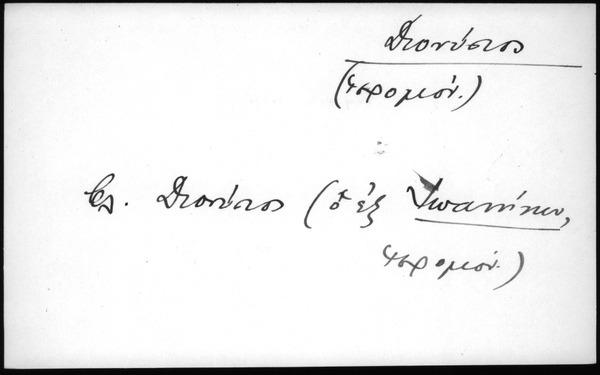 Διονύσιος
(ἱερομόν.)
Βλ. Διονύσιος (ὁ ἐξ Ἰωαννίνων,
ἱερομόν.)